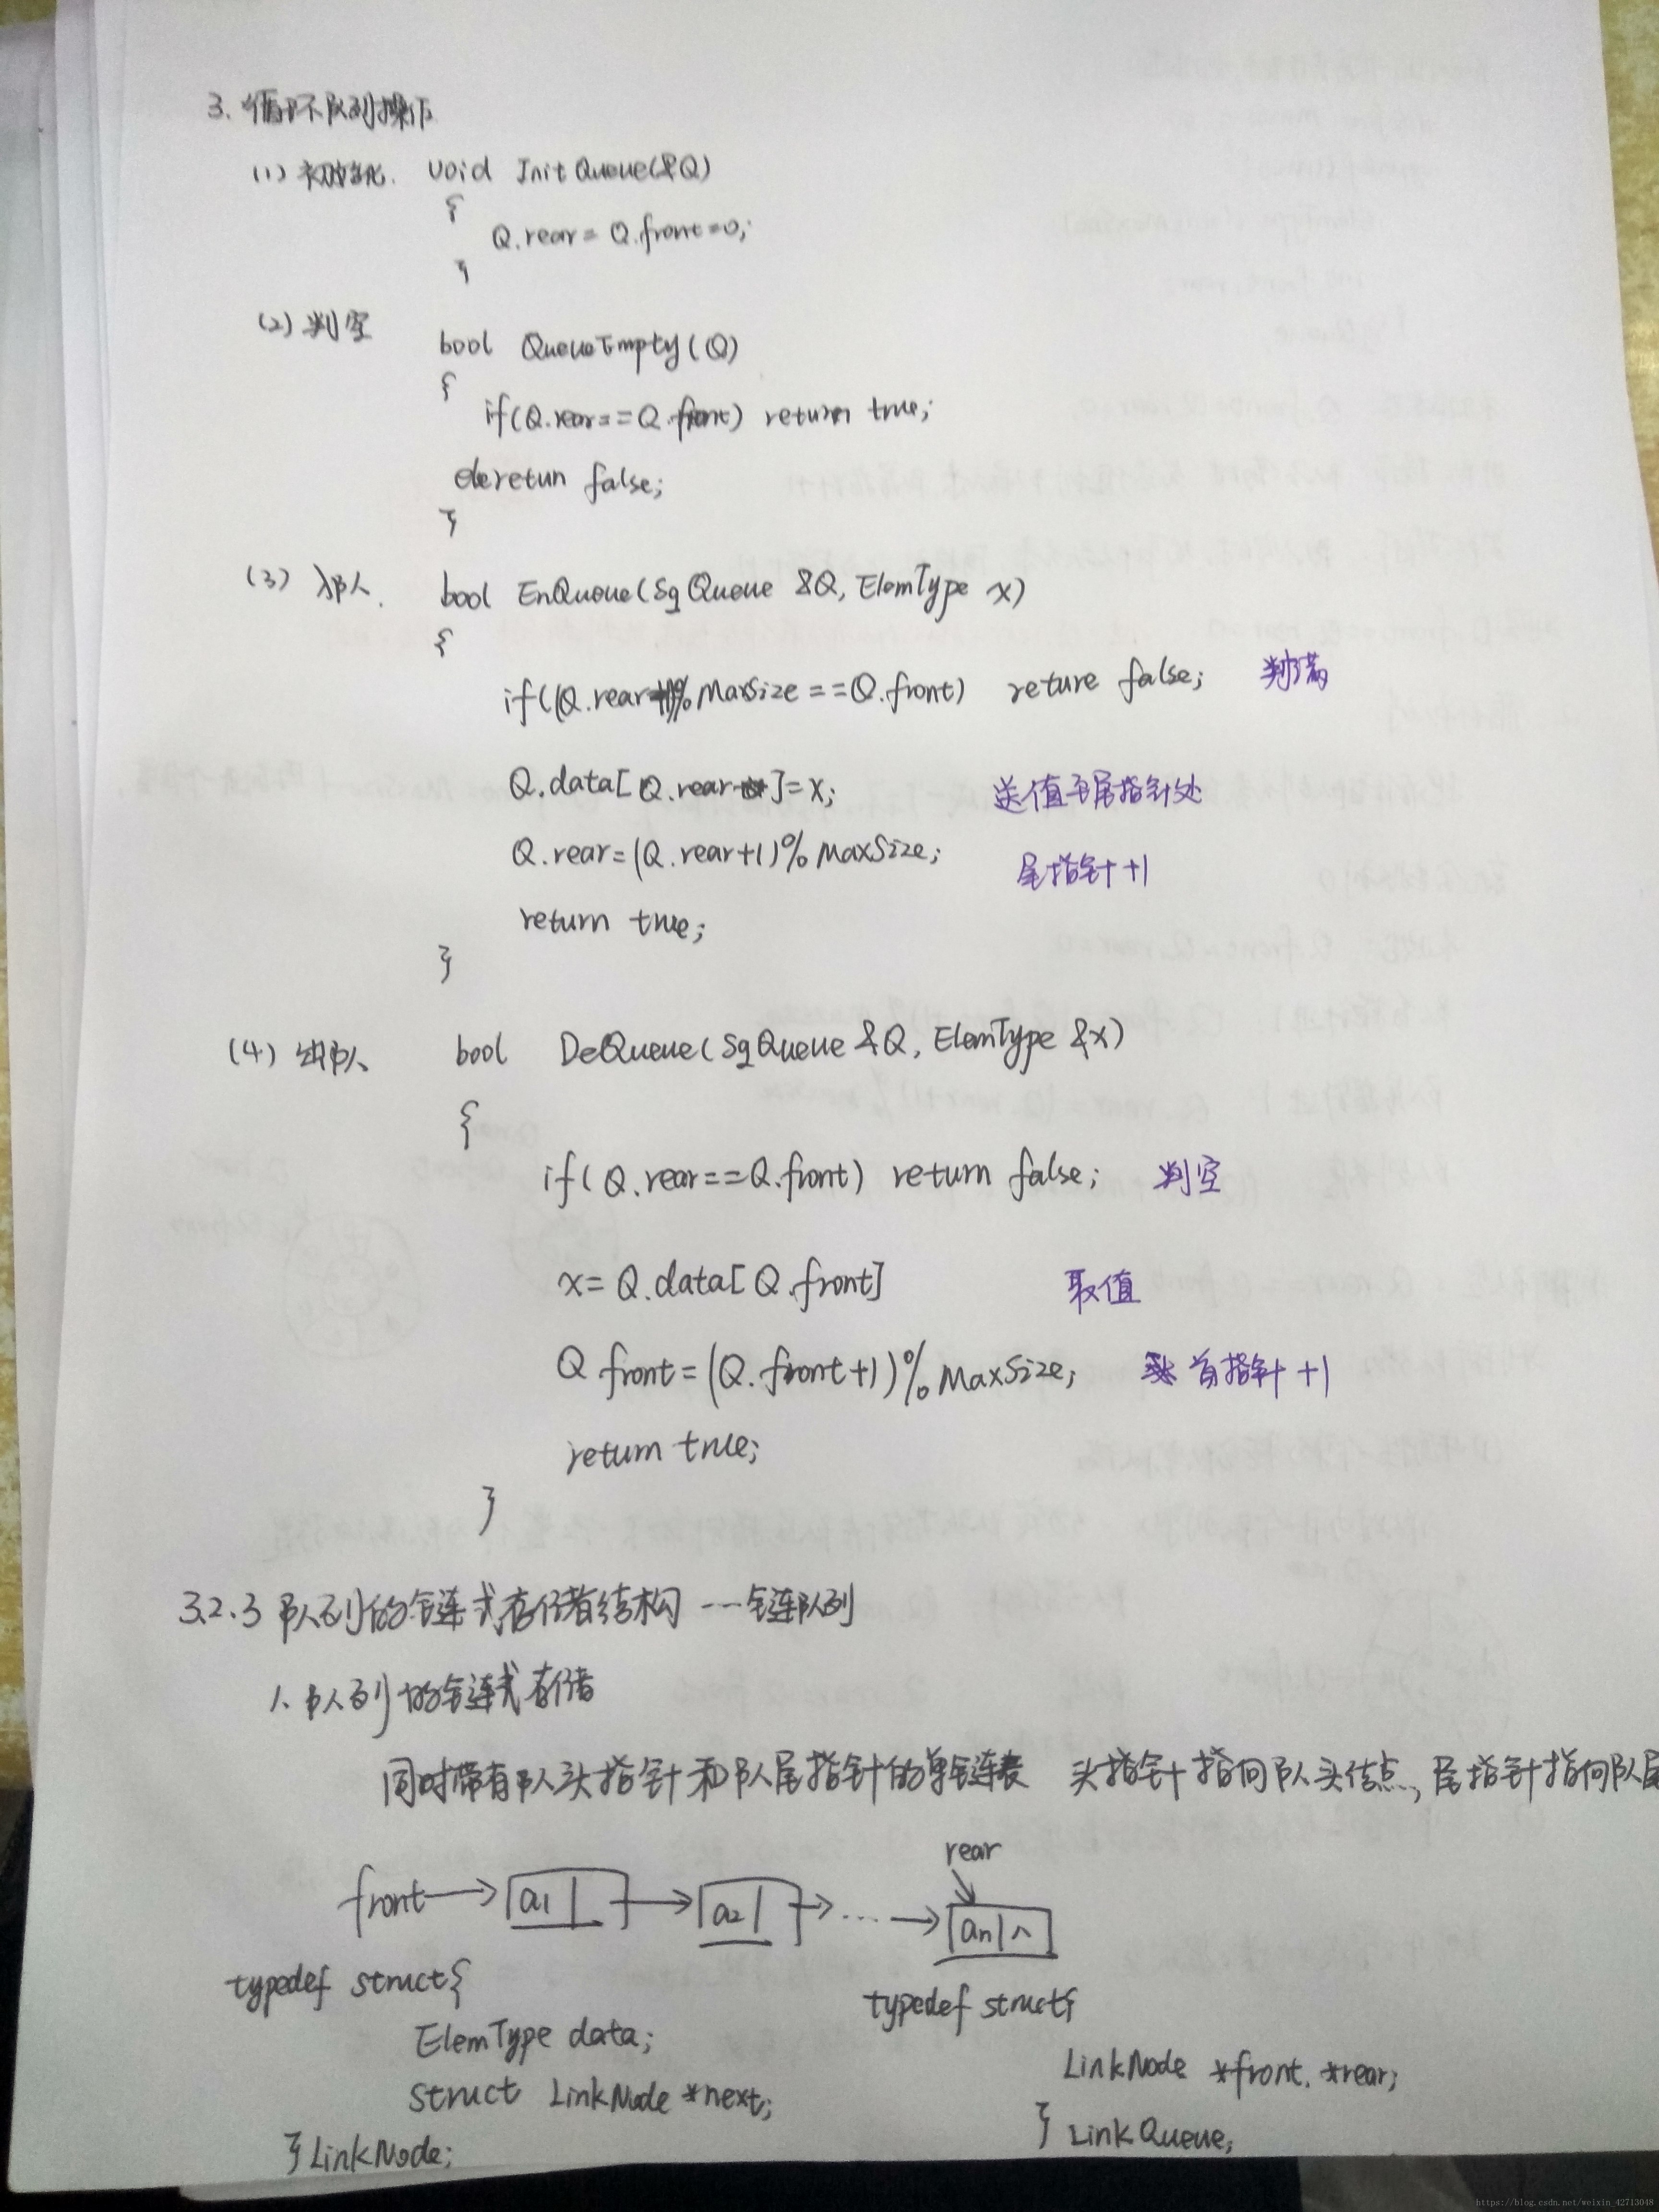 3. 循环队列操作
(1) 初始化. void InitQueue(&Q)
{
Q.rear = Q.front=0;
}
(2) 判空
bool QueueEmpty(Q)
{
if(Q.rear==Q.front) return true;
return false;
}
(3) 入队. bool EnQueue(SqQueue &Q, ElemType x)
{
if((Q.rear+1)%MaxSize==Q.front) reture false; 判满
Q.data[Q.rear]=x; 送值于尾指针处
Q.rear=(Q.rear+1)%MaxSize; 尾指针+1
return true;
}
(4) 出队 bool DeQueue(SqQueue &Q, ElemType &x)
{
if(Q.rear==Q.front) return false; 判空
x=Q.data[Q.front] 取值
Q front=(Q.front+1)%MaxSize; 首指针+1
return true;
}
3.2.3 队列的链式存储结构 ---链队列
1. 队列的链式存储
同时带有队头指针和队尾指针的单链表 头指针指向队头结点,尾指针指向队尾
rear
front a1 a2 .... an ^
typedef struct{
ElemType data;
struct LinkNode *next;
}LinkNode;
typedef struct{
LinkNode *front, *rear;
} LinkQueue;
https://blog.csdn.net/weixin_42713048